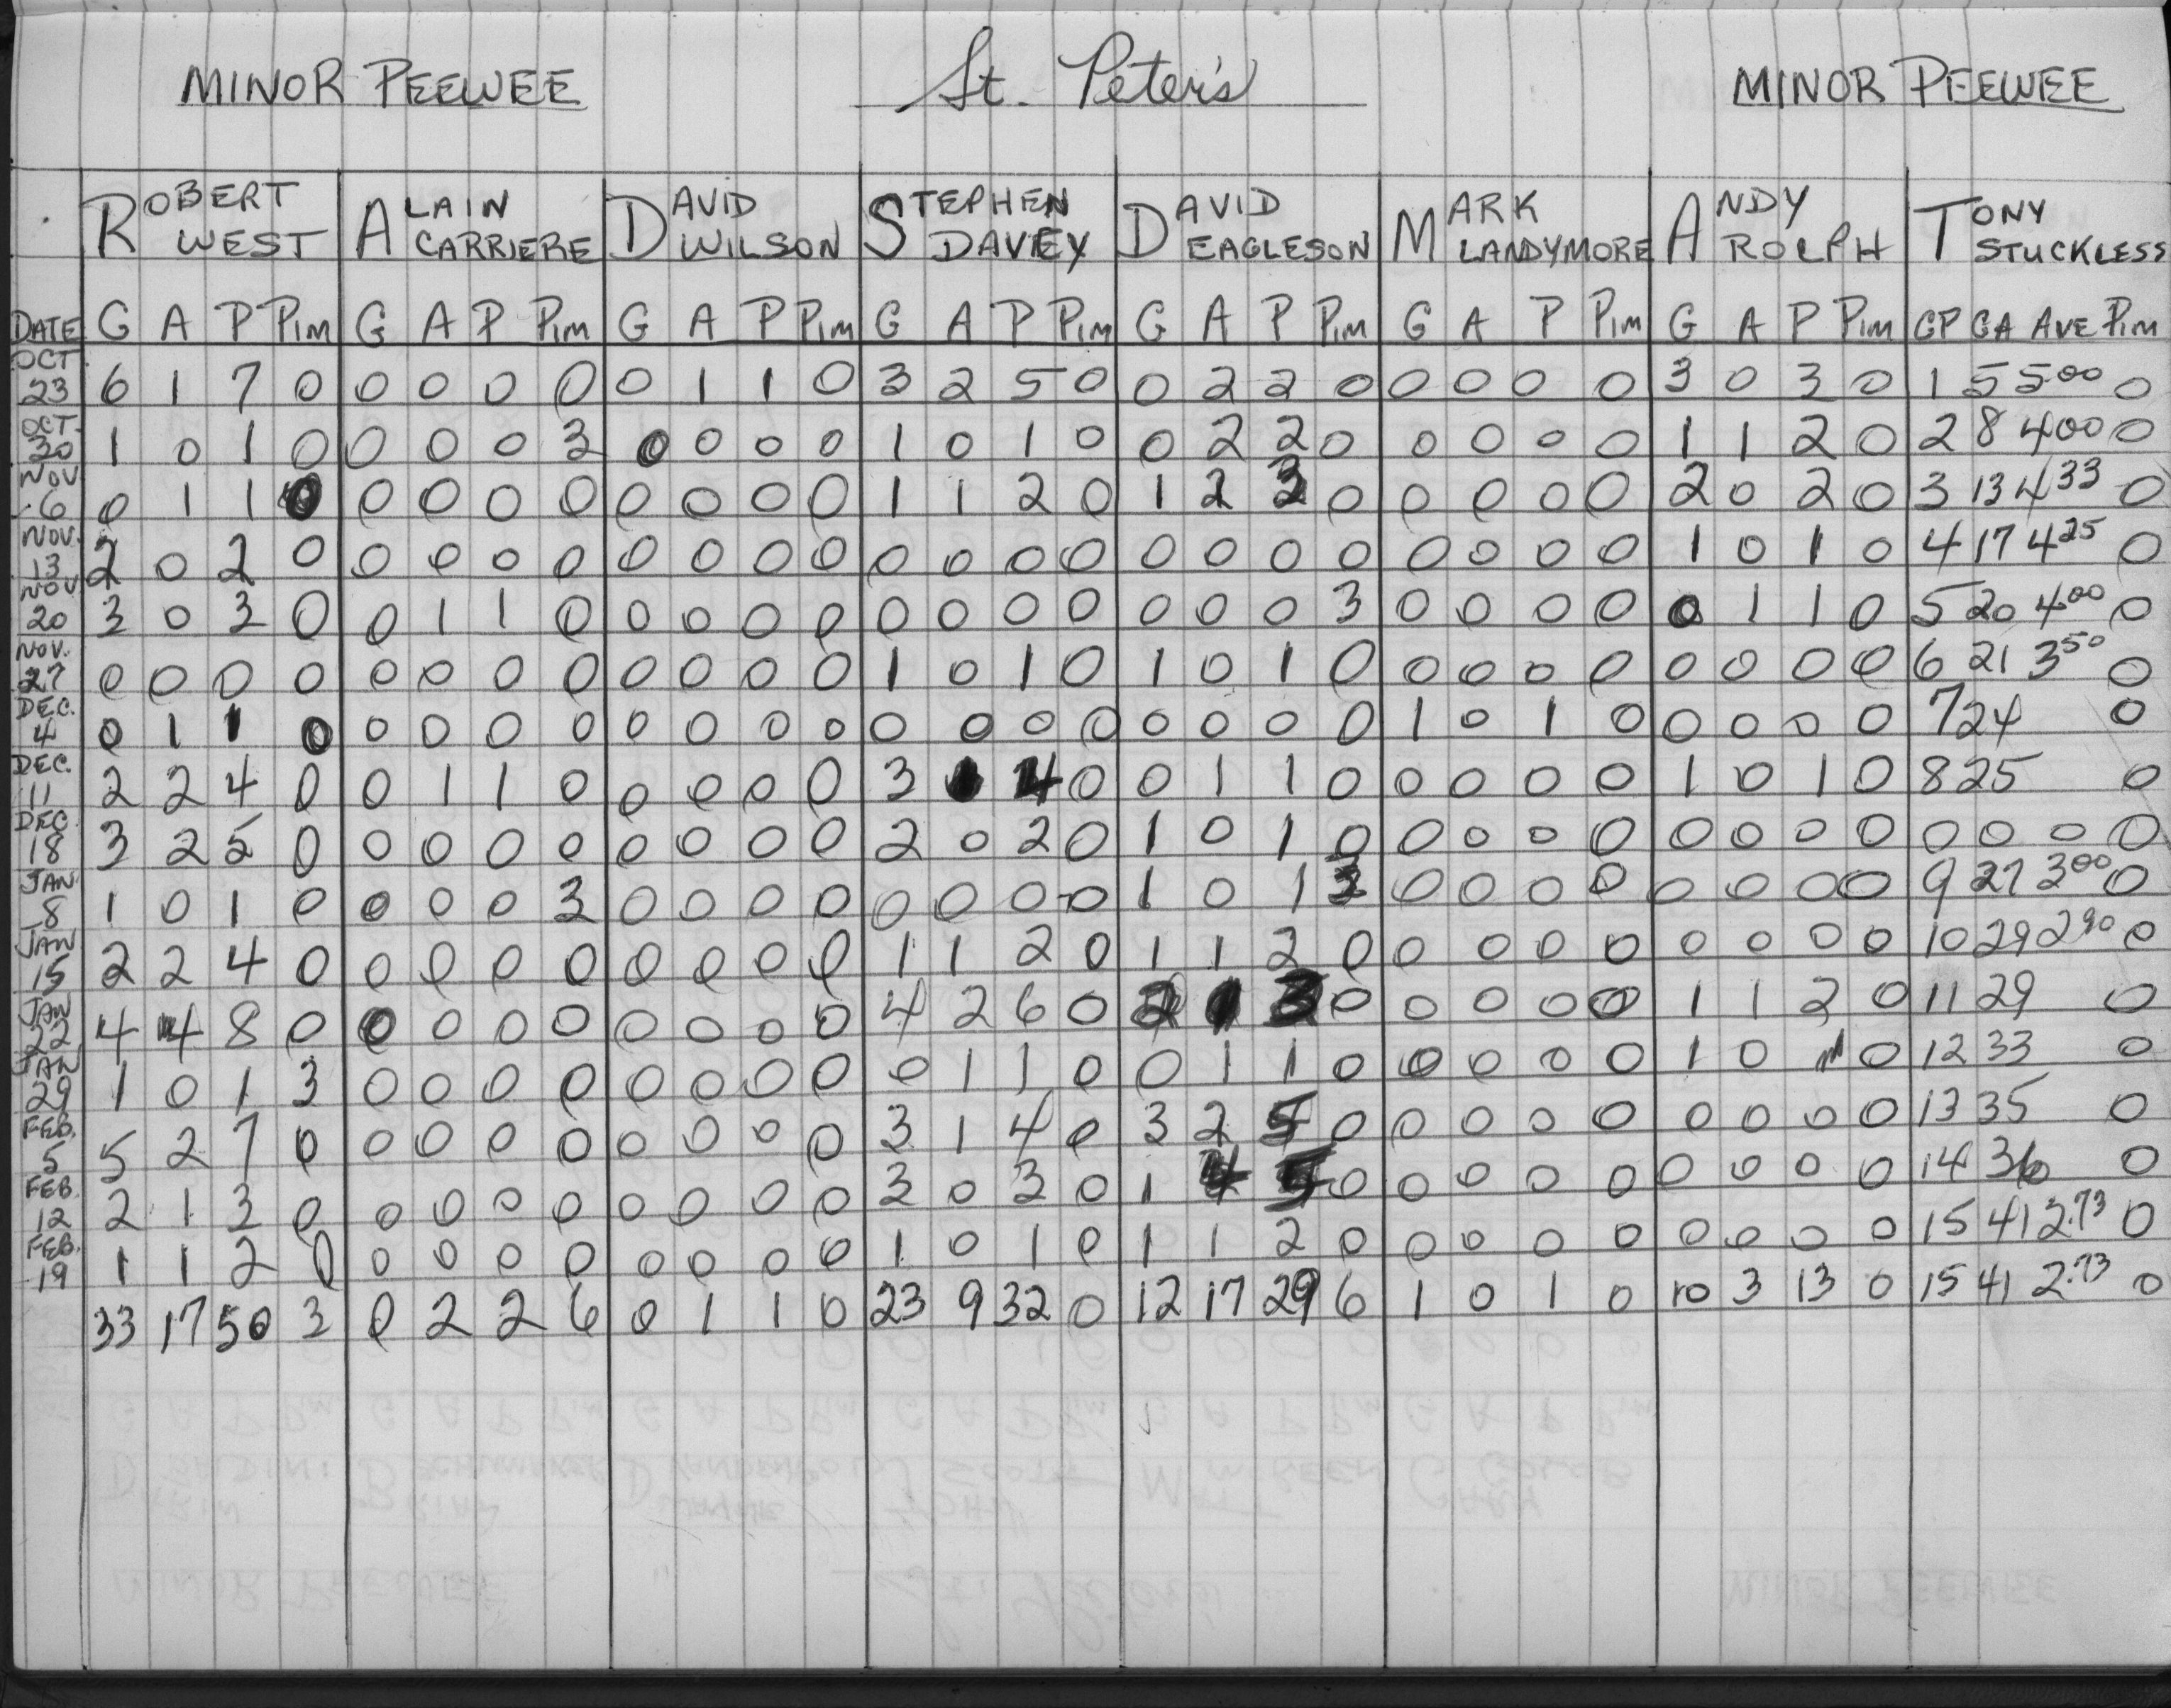 MINOR PEEWEE St. Peter's MINOR PEEWEE
ROBERT WEST ALAIN CARRIERE DAVID WILSON STEPHEN DAVEY DAVID EAGLESON MARK LANDYMORE ANDY ROLPH TONY STUCKLESS
DATE G A P PIM G A P PIM G A P PIM G A P PIM G A P PIM G A P PIM G A P PIM GP GA AVE PIM
OCT 23 6 1 7 0 0 0 0 0 0 1 1 0 3 2 5 0 0 2 2 0 0 0 0 0 3 0 3 0 1 5 5.00 0
OCT. 30 1 0 1 0 0 0 0 3 0 0 0 0 1 0 1 0 0 2 2 0 0 0 0 0 1 1 2 0 2 8 4.00 0
NOV 6 0 1 1 0 0 0 0 0 0 0 0 0 1 1 2 0 1 2 3 0 0 0 0 0 2 0 2 0 3 13 4.33 0
NOV. 13 2 0 2 0 0 0 0 0 0 0 0 0 0 0 0 0 0 0 0 0 0 0 0 0 1 0 1 0 4 17 4.25 0
NOV 20 3 0 3 0 0 1 1 0 0 0 0 0 0 0 0 0 0 0 0 3 0 0 0 0 0 1 1 0 5 20 4.00 0
NOV. 27 0 0 0 0 0 0 0 0 0 0 0 0 1 0 1 0 1 0 1 0 0 0 0 0 0 0 0 0 6 21 3.50 0
DEC. 4 0 1 1 0 0 0 0 0 0 0 0 0 0 0 0 0 0 0 0 0 1 0 1 0 0 0 0 0 7 24 0
DEC. 11 2 2 4 0 0 1 1 0 0 0 0 0 3 1 4 0 0 1 1 0 0 0 0 0 1 0 1 0 8 25 0
DEC 18 3 2 5 0 0 0 0 0 0 0 0 0 2 0 2 0 1 0 1 0 0 0 0 0 0 0 0 0 0 0 0 0
JAN 8 1 0 1 0 0 0 0 3 0 0 0 0 0 0 0 0 1 0 1 3 0 0 0 0 0 0 0 0 9 27 3.00 0
JAN 15 2 2 4 0 0 0 0 0 0 0 0 0 1 1 2 0 1 1 2 0 0 0 0 0 0 0 0 0 10 29 2.90 0
JAN 22 4 4 8 0 0 0 0 0 0 0 0 0 4 2 6 0 2 1 3 0 0 0 0 0 1 1 2 0 11 29 0
JAN 29 1 0 1 3 0 0 0 0 0 0 0 0 0 1 1 0 0 1 1 0 0 0 0 0 1 0 1 0 12 33 0
FEB. 5 5 2 7 0 0 0 0 0 0 0 0 0 3 1 4 0 3 2 5 0 0 0 0 0 0 0 0 0 13 35 0
FEB. 12 2 1 3 0 0 0 0 0 0 0 0 0 3 0 3 0 1 4 5 0 0 0 0 0 0 0 0 0 14 36 0
FEB. 19 1 1 2 0 0 0 0 0 0 0 0 0 1 0 1 0 1 1 2 0 0 0 0 0 0 0 0 0 15 41 2.73 0
33 17 50 3 0 2 2 6 0 1 1 0 23 9 32 0 12 17 29 6 1 0 1 0 10 3 13 0 15 41 2.73 0